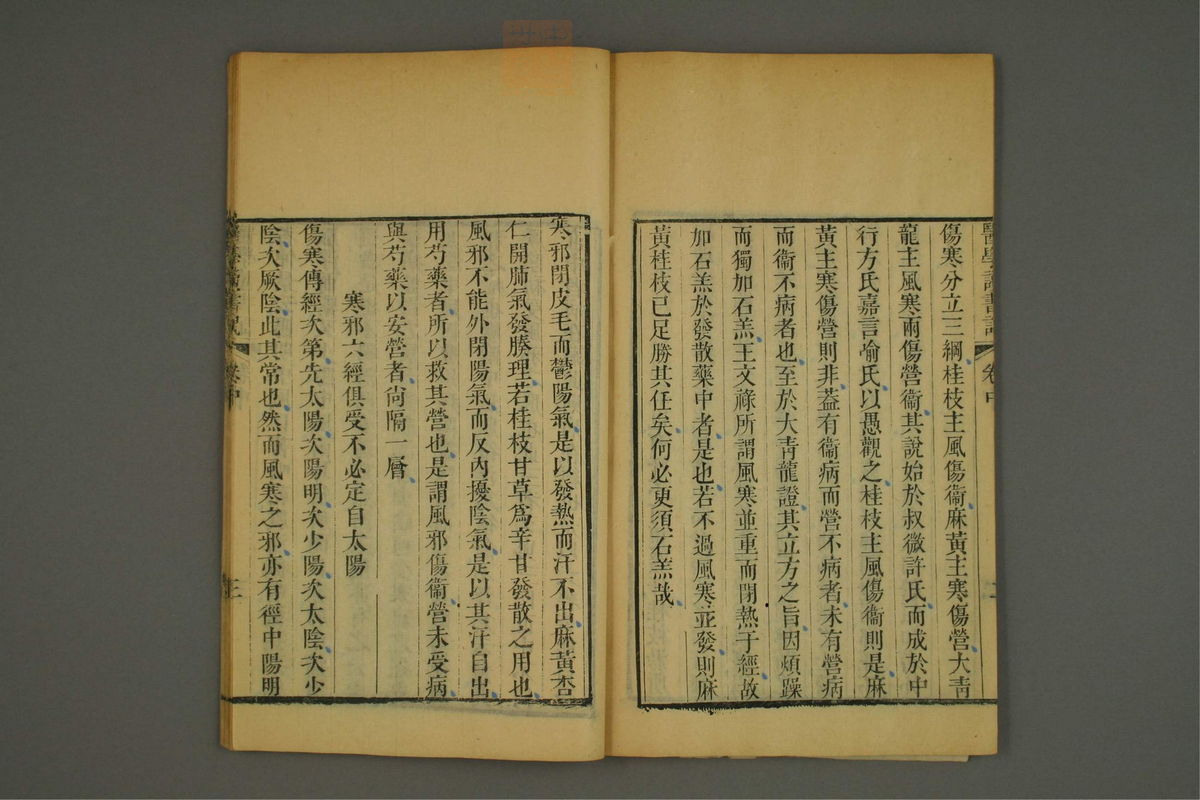 傷寒分立三綱桂枝主風傷衞麻黃主寒傷營大靑
龍主風寒兩傷營衞其說始於叔微許氏而成於中
行方氏嘉言喻氏以愚觀之桂枝主風傷衞則是麻
黃主寒傷營則非葢有衞病而營不病者未有營病
而衞不病者也至於大靑龍證其立方之旨因煩躁
而獨加石羔王文祿所謂風寒並重而閉熱于經故
加石羔於發散藥中者是也若不過風寒並發則麻
黃桂枝已足勝其任矣何必更須石羔哉
寒邪閉皮毛而鬱陽氣是以發熱而汗不出麻黃杏
仁開肺氣發腠理若桂枝甘草爲辛甘發散之用也
風邪不能外閉陽氣而反內擾陰氣是以其汗自出
用芍藥者所以救其營也是謂風邪傷衞營未受病
與芍藥以安營者尙隔一層
寒邪六經俱受不必定自太陽
傷寒傳經次第先太陽次陽明次少陽次太陰次少
陰次厥陰此其常也然而風寒之邪亦有徑中陽明